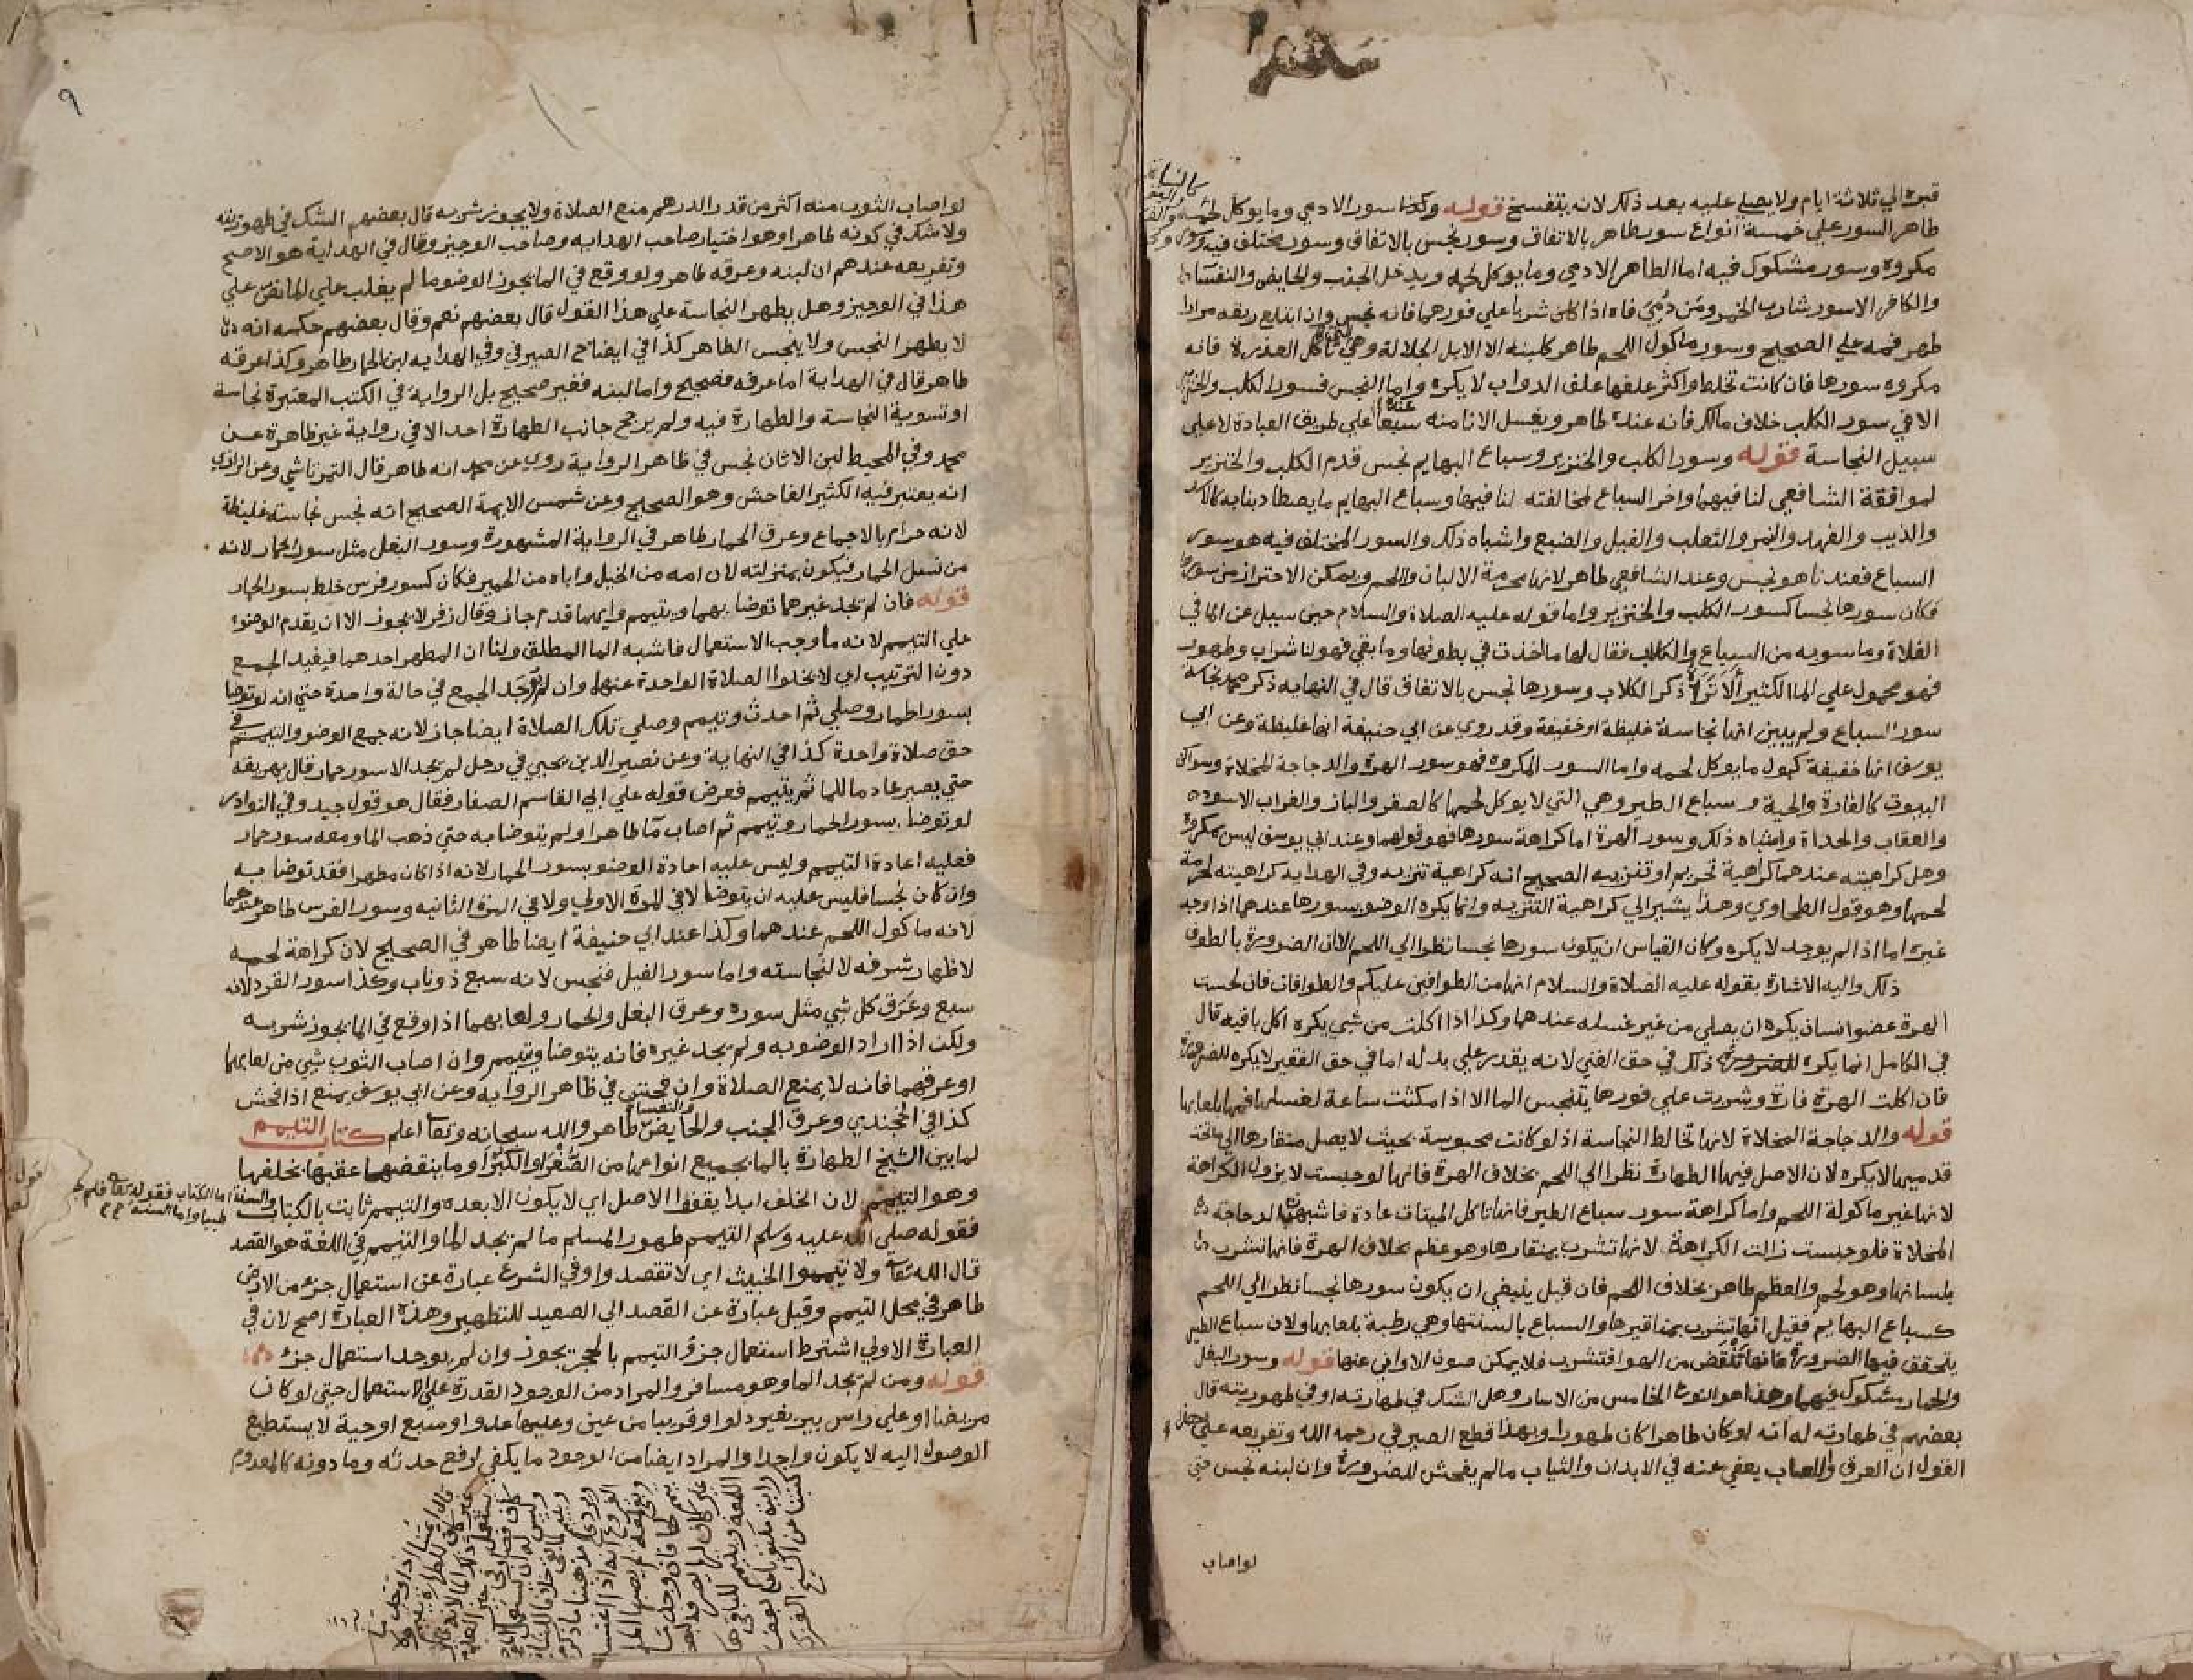 قبره الي ثلاثة ايام ولا يصلي عليه بعد ذلك لانه يتفسخ قوله وكذا سور الادمي وما يوكل لحمه
طاهر السور علي خمسة انواع سور طاهر بالاتفاق وسور نجس بالاتفاق وسور مختلف فيه وسور
مكروه وسور مشكوك فيه اما الطاهر الادمي وما يوكل لحمه ويدخل الجنب والحايض والنفسا
والكافر الا سور شارب الخمر ومن دمي فاه اذا كان شربا علي فورهما فانه نجس وان ابتلع ريقه مرارا
طهر فمه علي الصحيح وسور ماكول اللحم طاهر كلبنه الا الابل الجلالة وهي التي تاكل العذرة فانه
مكروه سورها فان كانت تخلط واكثر علفها علف الدواب لا يكره واما النجس فسور الكلب والخنزير
الا في سور الكلب خلاف مالك فانه عنده طاهر ويغسل الانا منه عنده سبعا علي طريق العبادة لا علي
سبيل النجاسة قوله وسور الكلب والخنزير وسباع البهايم نجس قدم الكلب والخنزير
لموافقة الشافعي لنا فيهما واخر السباع لمخالفته لنا فيها وسباع البهايم ما يصطاد بنابه كالاسد
والذيب والفهد والنمر والثعلب والفيل والضبع واشباه ذلك والسور المختلف فيه هو سور
السباع فعندنا هو نجس وعند الشافعي طاهر لانها محرمة الالبان واللحم ويمكن الاحتراز من سورها
فكان سورها نجسا كسور الكلب والخنزير واما قوله عليه الصلاة والسلام حين سيل عن الما في
الفلاة وما سوبه من السباع والكلاب فقال لها ما اخذت في بطونها وما بقي فهو لنا شراب وطهور
فهو محمول علي الما الكثير الا تراه ذكر الكلاب وسورها نجس بالاتفاق قال في النهايه ذكر محمد نجاسة
سور السباع ولم يبين انها نجاسة غليظة او خفيفة وقد روي عن ابي حنيفة انها غليظة وعن ابي
يوسف انها خفيفة كبول ما يوكل لحمه واما السور المكروه فهو سور الهرة والدجاجة المخلاة وسواكن
البيوت كالفارة والحية وسباع الطير وهي التي لا يوكل لحمها كالصقر والباز والغراب الاسود
والعقاب والحداة واشباه ذلك وسور الهرة اما كراهة سورها فهو قولهما وعند ابي يوسف ليس بمكروه
وهل كراهيته عندهما كراهية تحريم او تنزيه الصحيح انه كراهية تنزيه وفي الهدايه كراهيته لحرمة
لحمها وهو قول الطحاوي وهذا يشير الي كراهية التنزيه وانما يكره الوضو بسورها عندهما اذا وجد
غيره اما اذا لم يوجد لا يكره وكان القياس ان يكون سورها نجسا نظرا الي اللحم الا ان الضرورة بالطوف
ذلك واليه الاشارة بقوله عليه الصلاة والسلام انها من الطوافين عليكم والطوافات فان لحست
الهرة عضو انسان يكره ان يصلي من غير غسله عندهما وكذا اذا اكلت من شي يكره اكل باقيه قال
في الكامل انما يكره ذلك في حق الغني لانه يقدر علي بدله اما في حق الفقير لا يكره للضرورة
فان اكلت الهرة فارة وشربت علي فورها يتنجس الما الا اذا مكثت ساعة لغسلها فمها بلعابها
قوله والدجاجة المخلاة لانها تخالط النجاسة اذ لو كانت محبوسة بحيث لا يصل منقارها الي ما تحت
قدميها لا يكره لان الاصل فيها الطهارة نظرا الي اللحم بخلاف الهرة فانها لو حبست لا يزول الكراهة
لانها غير ماكولة اللحم واما كراهة سور سباع الطير فانها تاكل الميتات عادة فاشبهت الدجاجة
المخلاة فلو حبست زالت الكراهة لانها تشرب بمنقارها وهو عظم بخلاف الهرة فانها تشرب
بلسانها وهو لحم والعظم طاهر بخلاف اللحم فان قيل ينبغي ان يكون سورها نجسا نظرا الي اللحم
كسباع البهايم فقيل انها تشرب بمناقيرها والسباع بالسنتها وهي رطبة بلعابها ولان سباع الطير
يتحقق فيها الضرورة فانها تنقض من الهوا فتشرب فلا يمكن صون الاواني عنها قوله وسور البغل
والحمار مشكوك فيهما وهذا هو النوع الخامس من الاسار وهل الشك في طهارته او في طهوريته قال
بعضهم في طهارته لانه لو كان طاهرا كان طهورا وبهذا قطع الصيرفي رحمه الله وتفريعه علي هذا
القول ان العرق واللعاب يعفي عنه في الابدان والثياب ما لم يفحش للضرورة وان لبنه نجس حتي
لو اصاب
٩
لو اصاب الثوب منه اكثر من قدر الدرهم منع الصلاة ولا يجوز شربه قال بعضهم الشك في طهوريته
ولا شك في كونه طاهرا وهو اختيار صاحب الهدايه وصاحب الوجيز وقال في الهداية هو الاصح
وتفريعه عندهم ان لبنه وعرقه طاهر ولو وقع في الما يجوز الوضو ما لم يغلب علي الما نص علي
هذا في الوجيز وهل يطهر النجاسة علي هذا القول قال بعضهم نعم وقال بعضهم حكمه انه
لا يطهر النجس ولا ينجس الطاهر كذا في ايضاح الصيرفي وفي الهدايه لبن الحمار طاهر وكذا عرقه
طاهر قال في الهداية اما عرقه فصحيح واما لبنه فغير صحيح بل الرواية في الكتب المعتبرة نجاسة
او تسوية النجاسة والطهارة فيه ولم يرجح جانب الطهارة احد الا في رواية غير ظاهرة عن
محمد وفي المحيط لبن الاتان نجس في ظاهر الرواية روي عن محمد انه طاهر قال التمرتاشي وعن البزدوي
انه يعتبر فيه الكثير الفاحش وهو الصحيح وعن شمس الايمة الصحيح انه نجس نجاسة غليظة
لانه حرام بالاجماع وعرق الحمار طاهر في الرواية المشهورة وسور البغل مثل سور الحمار لانه
من نسل الحمار فيكون بمنزلته لان امه من الخيل واباه من الحمير فكان كسور فرس خلط بسور الحمار
قوله فان لم يجد غيرهما توضا بهما ويتيمم وايهما قدم جاز وقال زفر لا يجوز الا ان يقدم الوضو
علي التيمم لانه ما وجب الاستعمال فاشبه الما المطلق ولنا ان المطهر احدهما فيفيد الجمع
دون الترتيب اي لا يخلوا الصلاة الواحدة عنهما وان لم يوجد الجمع في حالة واحدة حتي انه لو توضا
بسور الحمار وصلي ثم احدث وتيمم وصلي تلك الصلاة ايضا جاز لانه جمع الوضو والتيمم في
حق صلاة واحدة كذا في النهاية وعن نصير الدين يحيي في رجل لم يجد الا سور حمار قال يهريقه
حتي يصير عادما للما ثم يتيمم فعرض قوله علي ابي القاسم الصفار فقال هو قول جيد وفي النوادر
لو توضا بسور الحمار وتيمم ثم اصاب ما طاهرا ولم يتوضا به حتي ذهب الما ومعه سور حمار
فعليه اعادة التيمم وليس عليه اعادة الوضو بسور الحمار لانه اذا كان مطهرا فقد توضا به
وان كان نجسا فليس عليه ان يتوضا لا في المرة الاولي ولا في المرة الثانيه وسور الفرس طاهر عندهما
لانه ماكول اللحم عندهما وكذا عند ابي حنيفة ايضا طاهر في الصحيح لان كراهة لحمه
لاظهار شرفه لا لنجاسته واما سور الفيل فنجس لانه سبع ذو ناب وكذا سور القرد لانه
سبع وعرق كل شي مثل سوره وعرق البغل والحمار ولعابهما اذا وقع في الما يجوز شربه
ولكن اذا اراد الوضو به ولم يجد غيره فانه يتوضا ويتيمم وان اصاب الثوب شي من لعابهما
او عرقهما فانه لا يمنع الصلاة وان فحش في ظاهر الرواية وعن ابي يوسف يمنع اذا فحش
كذا في الخجندي وعرق الجنب والحايض والنفسا طاهر والله سبحانه وتعا اعلم كتاب التيمم
لما بين الشيخ الطهارة بالما بجميع انواعها من الصغرا والكبرا وما ينقضها عقبها بخلفها
وهو التيمم لان الخلف ابدا يقفوا الاصل اي لا يكون الا بعده والتيمم ثابت بالكتاب والسنة اما الكتاب فقوله تعا فلم
طيبا واما السنة
فقوله صلي الله عليه وسلم التيمم طهور المسلم ما لم يجد الما والتيمم في اللغة هو القصد
قال الله تعا ولا تيمموا الخبيث اي لا تقصدوا وفي الشرع عبارة عن استعمال جزء من الارض
طاهر في محل التيمم وقيل عبارة عن القصد الي الصعيد للتطهير وهذه العبارة اصح لان في
العبارة الاولي اشترط استعمال جزؤ التيمم بالحجر يجوز وان لم يوجد استعمال جزء
قوله ومن لم يجد الما وهو مسافر والمراد من الوجود القدرة علي الاستعمال حتي لو كان
مريضا او علي راس بير بغير دلو او قريبا من عين وعليها عدو او سبع او حية لا يستطيع
الوصول اليه لا يكون واجدا والمراد ايضا من الوجود ما يكفي لرفع حدثه وما دونه كالمعدوم